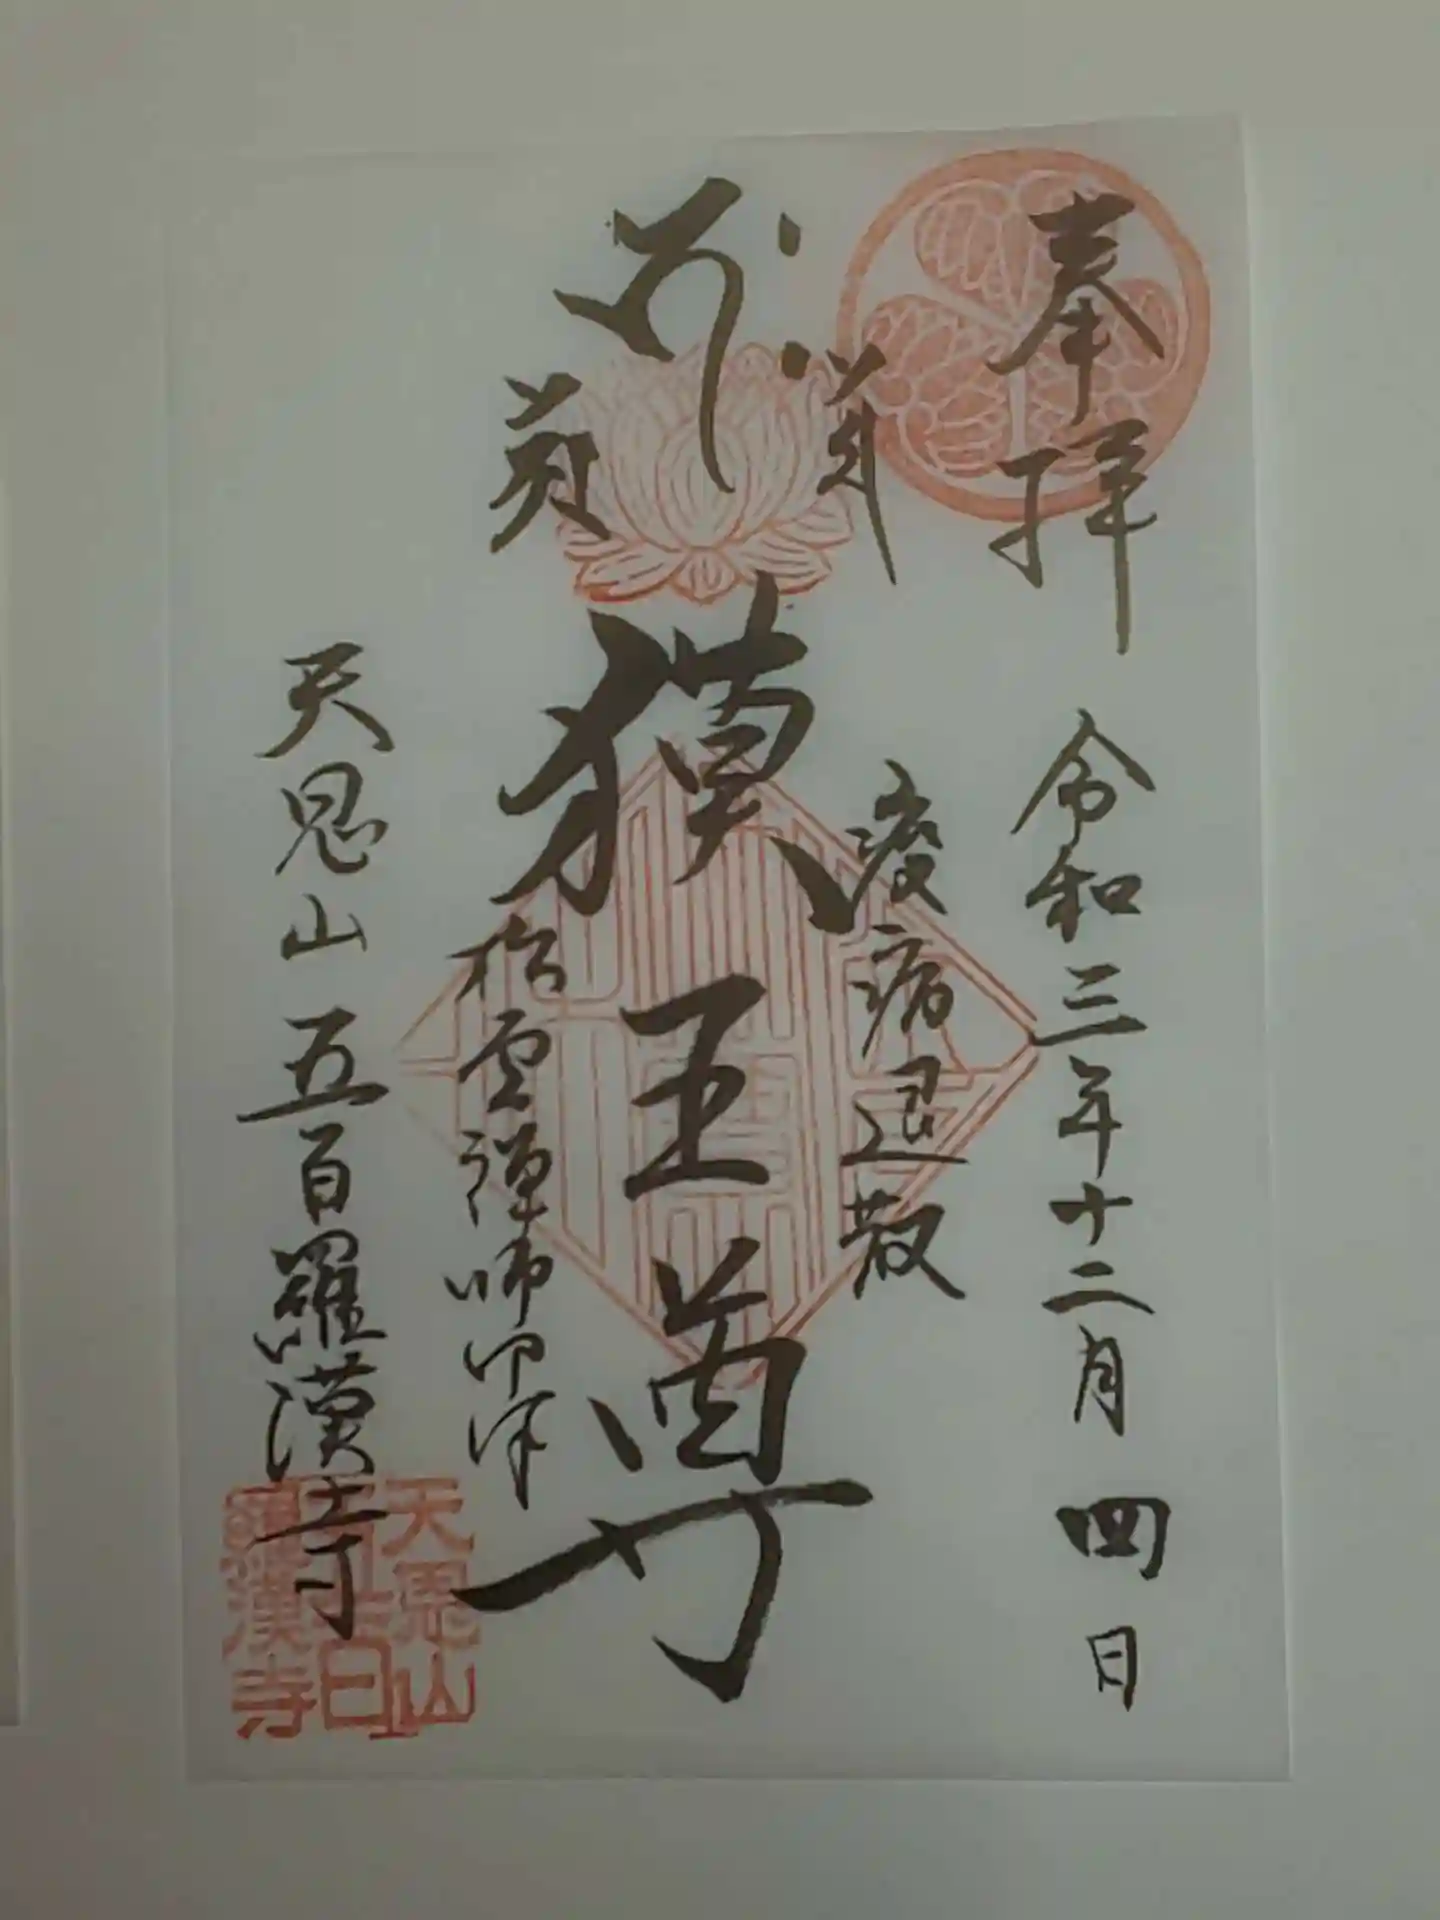 奉拝
令和三年十二月四日
疫病退散
獏王尊
松雲禅師御作
天恩山 五百羅漢寺
天恩山
五百
羅漢寺